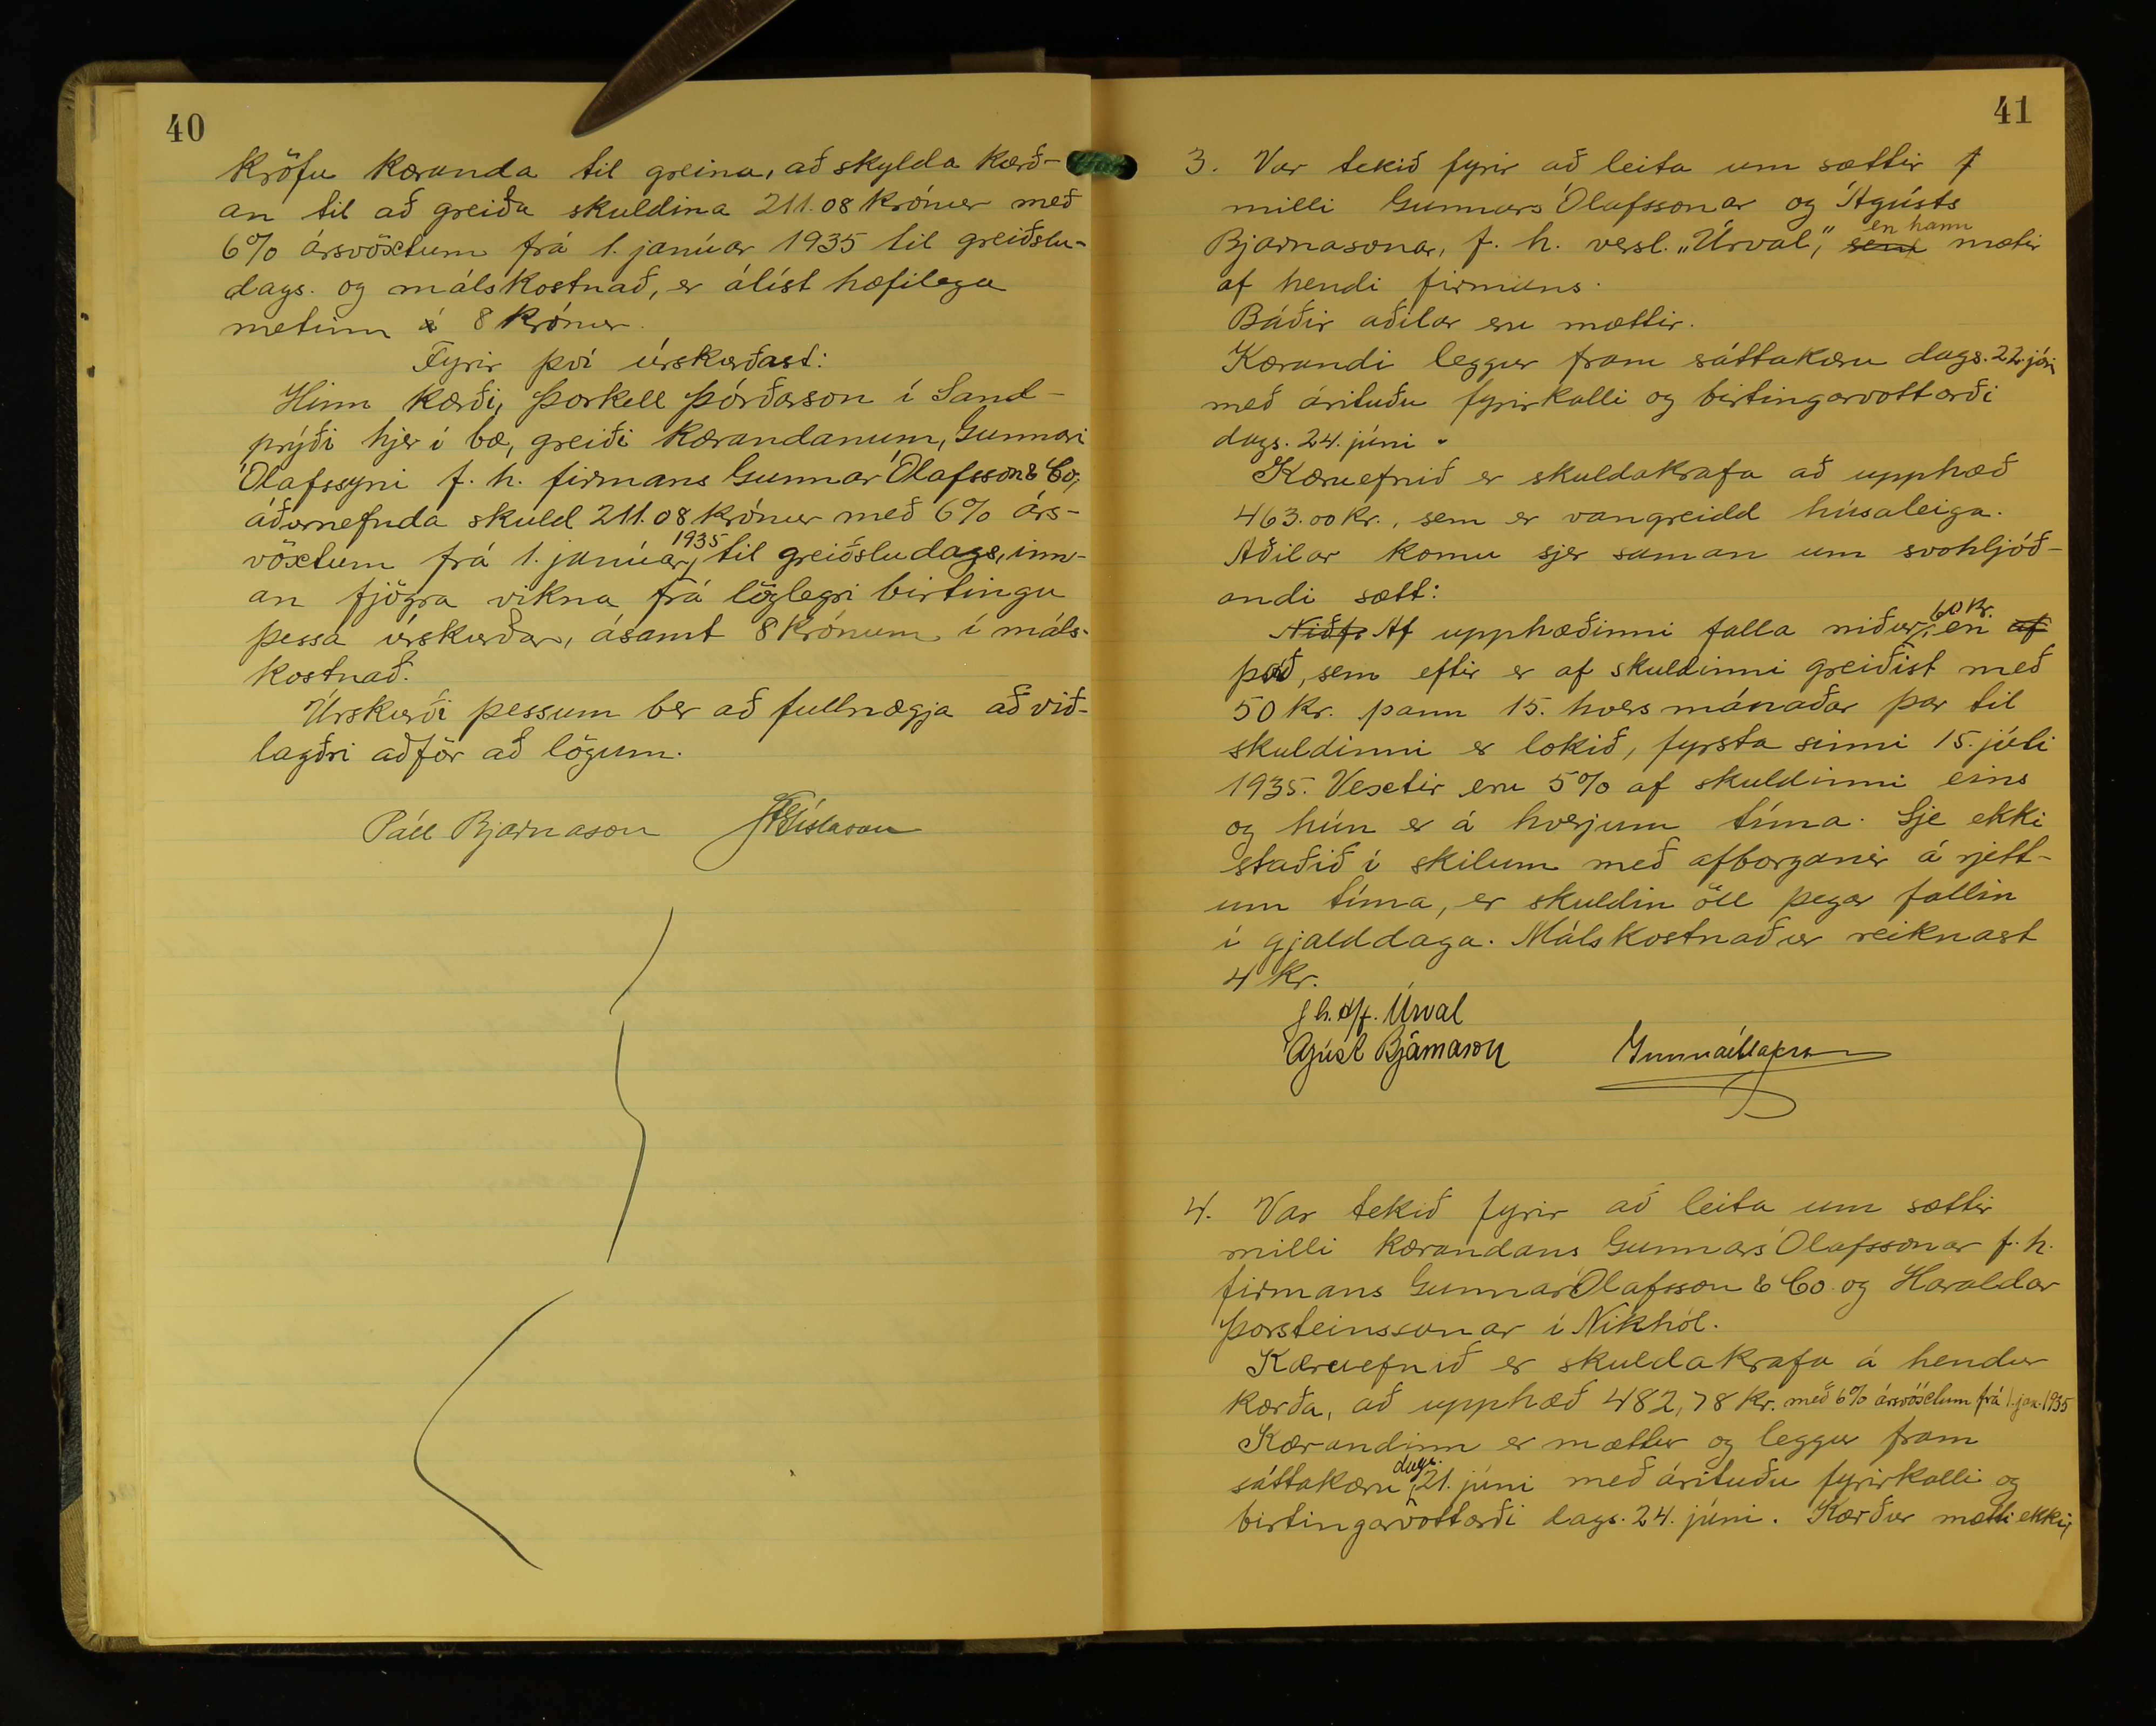 40
kröfu kæranda til greina, að skylda kærð-
an til að greiða skuldina 211.08 krónur með
6% ársvöxtum frá 1. janúar 1935 til greiðslu-
dags. og málskostnað, er álíst hæfilega
metinn á 8 krónur.
Fyrir því úrskurðast:
Hinn kærði, Þorkell Þórðarson í Sand-
prýði hjer í bæ, greiði kærandanum, Gunnari
Ólafssyni f. h. firmans Gunnar Ólafsson & Co,
áðurnefnda skuld 211.08 krónur með 6% árs-
vöxtum frá 1. janúar 1935 til greiðsludags, inn-
an fjögra vikna frá löglegri birtingu
þessa úrskurðar, ásamt 8 krónum í máls-
kostnað.
Úrskurði þessum ber að fullnægja að við-
lagðri aðför að lögum.
Páll Bjarnason Gíslason
41
3. Var tekið fyrir að leita um sættir f
milli Gunnars Ólafssonar og Ágústs
Bjarnasonar, f. h. versl. „Úrval," sem en hann mætir
af hendi firmuns.
Báðir aðilar eru mættir.
Kærandi leggur fram sáttakæru dags. 22. júní
með árituðu fyrirkalli og birtingarvottorði
dags. 24. júni.
Kæruefnið er skuldakrafa að upphæð
463.00 kr., sem er vangreidd húsaleiga.
Aðilar komu sjer saman um svohljóð-
andi sætt:
Niðf. Af upphæðinni falla niður 60 kr. en af
það, sem eftir er af skuldinni greiðist með
50 kr. þann 15. hvers mánaðar þar til
skuldinni er lokið, fyrsta sinni 15. júlí
1935. Vextir eru 5% af skuldinni eins
og hún er á hverjum tíma. Sje ekki
staðið í skilum með afborganir á rjett-
um tíma, er skuldin öll þegar fallin
í gjalddaga. Málskostnaður reiknast
4 kr.
f h. h/f. Úrval
Ágúst Bjarnason Gunnar Ólafsson
4. Var tekið fyrir að leita um sættir
milli kærandans Gunnars Ólafssonar f. h.
firmans Gunnar Ólafsson & Co. og Haraldar
Þorsteinssonar í Nikhól.
Kæruefnið er skuldakrafa á hendur
kærða, að upphæð 482,78 kr. með 6% ársvöxtum frá 1. jan. 1935
Kærandinn er mættur og leggur fram
sáttakæru dags. 21. júni með árituðu fyrirkalli og
birtingarvottorði dags. 24. júni. Kærður mætti ekki,